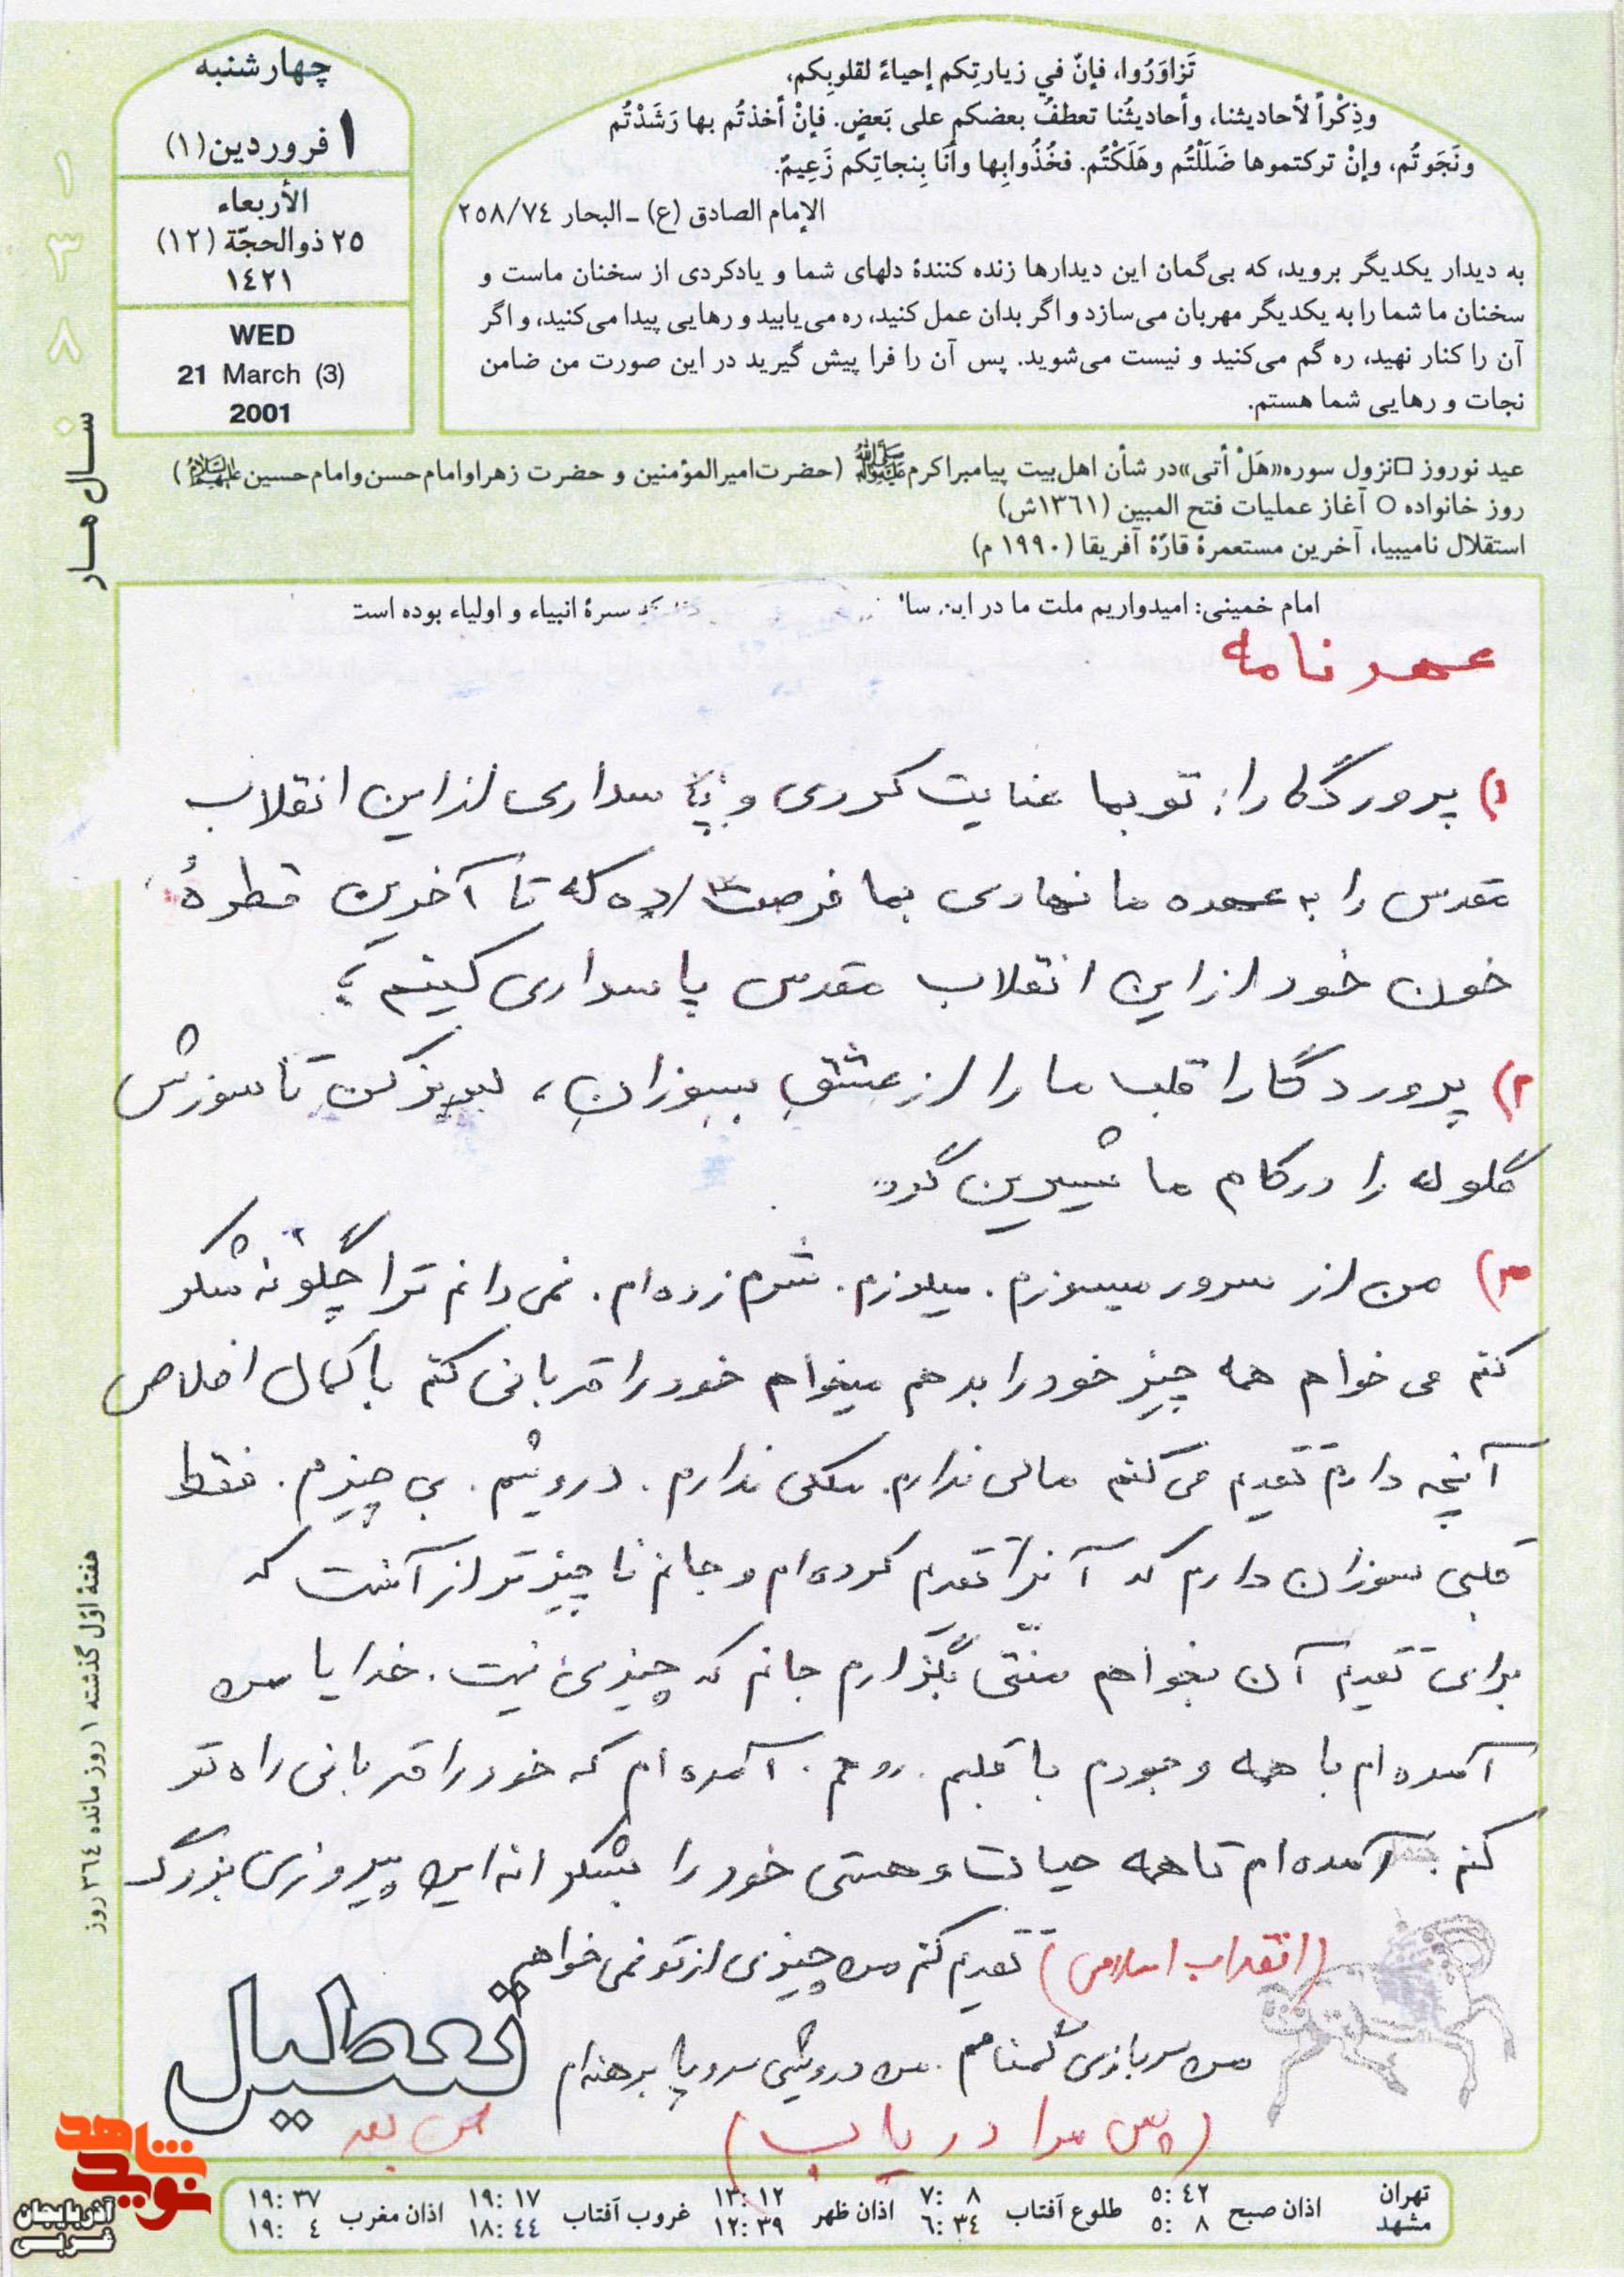 چهارشنبه
۱ فروردین (۱)
الأربعاء
٢٥ ذوالحجّة (١٢)
١٤٢١
WED
21 March (3)
2001
تَزاوَرُوا، فإنّ في زيارتِكم إحياءً لقلوبِكم،
وذِكْراً لأحاديثنا، وأحاديثُنا تعطفُ بعضكم على بَعضٍ. فإنْ أخذتُم بها رَشَدْتُم
ونَجَوتُم، وإنْ تركتموها ضَلَلْتُم وهَلَكْتُم. فخُذُوابِها وأنَا بِنجاتِكم زَعِيمٌ.
الإمام الصادق (ع) ـ البحار ٢٥٨/٧٤
به دیدار یکدیگر بروید، که بی‌گمان این دیدارها زنده کنندهٔ دلهای شما و یادکردی از سخنان ماست و
سخنان ما شما را به یکدیگر مهربان می‌سازد و اگر بدان عمل کنید، ره می‌یابید و رهایی پیدا می‌کنید، و اگر
آن را کنار نهید، ره گم می‌کنید و نیست می‌شوید. پس آن را فرا پیش گیرید در این صورت من ضامن
نجات و رهایی شما هستم.
۱۳۸۰
سال هـار
عید نوروز □ نزول سوره «هَلْ أتی» در شأن اهل‌بیت پیامبراکرم ﷺ (حضرت‌امیرالمؤمنین و حضرت زهرا و امام حسن و امام حسین علیهم‌السلام)
روز خانواده ○ آغاز عملیات فتح المبین (۱۳۶۱ش)
استقلال نامیبیا، آخرین مستعمرهٔ قارّهٔ آفریقا (۱۹۹۰ م)
امام خمینی: امیدواریم ملت ما در این سا سیرهٔ انبیاء و اولیاء بوده است
عهد نامه
۱) پرورگارا: تو بما عنایت کردی و پاسداری از این انقلاب
مقدس را به عهده ما نهادی بما فرصت ده که تا آخرین قطرهٔ
خون خود از این انقلاب مقدس پاسداری کینم؟
۲) پروردگارا قلب ما را از عشقِ بسوزانِ، لبریز کن تا سوزش
گلوله را در کام ما شیرین گردد
۳) من از سرور میسوزم. میلرزم. شرم زده‌ام. نمی دانم ترا چگونه شکر
کنم می خواهم همه چیز خود را بدهم میخواهم خود را قربانی کنم با کمال اخلاص
آنچه دارم تقدیم می کنم مالی ندارم. ملکی ندارم. درویشم. بی چیزم. فقط
قلبی سوزان دارم که آنرا تقدیم کرده‌ام و جانم ناچیزتر از آنست که
برای تقدیم آن بخواهم منّتی بگزارم جانم که چیزی نیست. خدایا من
آمده‌ام با همه وجودم با قلبم. روحم. آمده‌ام که خود را قربانی راه تو
کنم. آمده‌ام تا همه حیات و هستی خود را بشکرانه این پیروزی بزرگ
(انقلاب اسلامی) تقدیم کنم من چیزی از تو نمی خواهم
من سربازی گمنامم. من درویشی سر و پا برهنه‌ام
(پس مرا دریاب)
تعطیل
هفتهٔ اوّل گذشته ۱ روز مانده ۳۶۴ روز
تهران اذان صبح ۵:۴۲ طلوع آفتاب ۷:۸ اذان ظهر ۱۳:۱۲ غروب آفتاب ۱۹:۱۷ اذان مغرب ۱۹:۳۷
مشهد ۵:۸ ۶:۳۴ ۱۲:۳۹ ۱۸:۴۴ ۱۹:۴
نوید شاهد
آذربایجان غربی